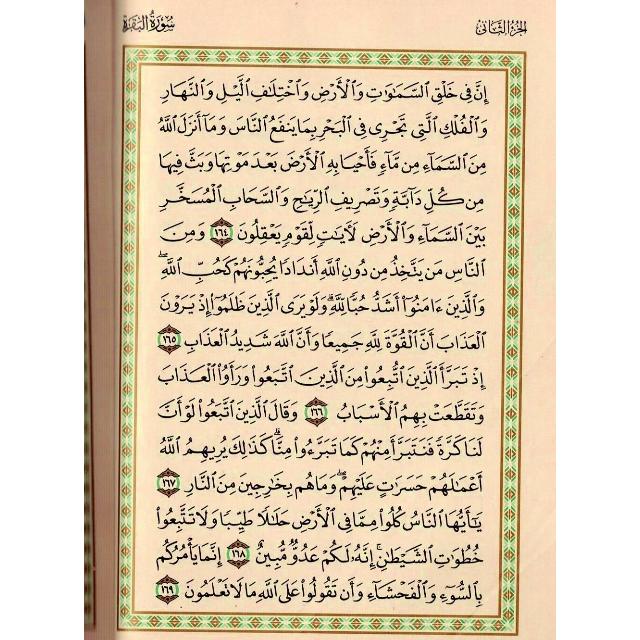 سُورَةُ البَقَرَةِ
الجُزءُ الثَّانِي
إِنَّ فِي خَلْقِ ٱلسَّمَٰوَٰتِ وَٱلْأَرْضِ وَٱخْتِلَٰفِ ٱلَّيْلِ وَٱلنَّهَارِ
وَٱلْفُلْكِ ٱلَّتِي تَجْرِي فِي ٱلْبَحْرِ بِمَا يَنفَعُ ٱلنَّاسَ وَمَآ أَنزَلَ ٱللَّهُ
مِنَ ٱلسَّمَآءِ مِن مَّآءٍ فَأَحْيَا بِهِ ٱلْأَرْضَ بَعْدَ مَوْتِهَا وَبَثَّ فِيهَا
مِن كُلِّ دَآبَّةٍ وَتَصْرِيفِ ٱلرِّيَٰحِ وَٱلسَّحَابِ ٱلْمُسَخَّرِ
بَيْنَ ٱلسَّمَآءِ وَٱلْأَرْضِ لَأٓيَٰتٍ لِّقَوْمٍ يَعْقِلُونَ ١٦٤ وَمِنَ
ٱلنَّاسِ مَن يَتَّخِذُ مِن دُونِ ٱللَّهِ أَندَادًا يُحِبُّونَهُمْ كَحُبِّ ٱللَّهِۖ
وَٱلَّذِينَ ءَامَنُوٓا۟ أَشَدُّ حُبًّا لِّلَّهِۗ وَلَوْ يَرَى ٱلَّذِينَ ظَلَمُوٓا۟ إِذْ يَرَوْنَ
ٱلْعَذَابَ أَنَّ ٱلْقُوَّةَ لِلَّهِ جَمِيعًا وَأَنَّ ٱللَّهَ شَدِيدُ ٱلْعَذَابِ ١٦٥
إِذْ تَبَرَّأَ ٱلَّذِينَ ٱتُّبِعُوا۟ مِنَ ٱلَّذِينَ ٱتَّبَعُوا۟ وَرَأَوُا۟ ٱلْعَذَابَ
وَتَقَطَّعَتْ بِهِمُ ٱلْأَسْبَابُ ١٦٦ وَقَالَ ٱلَّذِينَ ٱتَّبَعُوا۟ لَوْ أَنَّ
لَنَا كَرَّةً فَنَتَبَرَّأَ مِنْهُمْ كَمَا تَبَرَّءُوا۟ مِنَّاۗ كَذَٰلِكَ يُرِيهِمُ ٱللَّهُ
أَعْمَٰلَهُمْ حَسَرَٰتٍ عَلَيْهِمْۖ وَمَا هُم بِخَٰرِجِينَ مِنَ ٱلنَّارِ ١٦٧
يَٰٓأَيُّهَا ٱلنَّاسُ كُلُوا۟ مِمَّا فِي ٱلْأَرْضِ حَلَٰلًا طَيِّبًا وَلَا تَتَّبِعُوا۟
خُطُوَٰتِ ٱلشَّيْطَٰنِۚ إِنَّهُۥ لَكُمْ عَدُوٌّ مُّبِينٌ ١٦٨ إِنَّمَا يَأْمُرُكُم
بِٱلسُّوٓءِ وَٱلْفَحْشَآءِ وَأَن تَقُولُوا۟ عَلَى ٱللَّهِ مَا لَا تَعْلَمُونَ ١٦٩